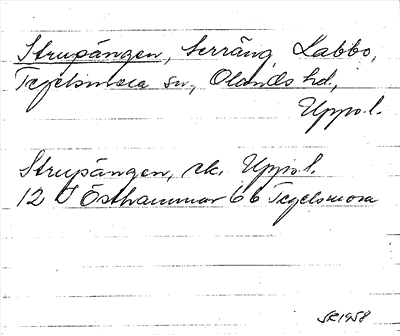 Strupängen, terräng, Labbo,
Tegelsmora sn, Olands hd,
Upps.l.
Strupängen, rk. Upps.l.
12 I Östhammar 6 b Tegelsmora
SR 1958